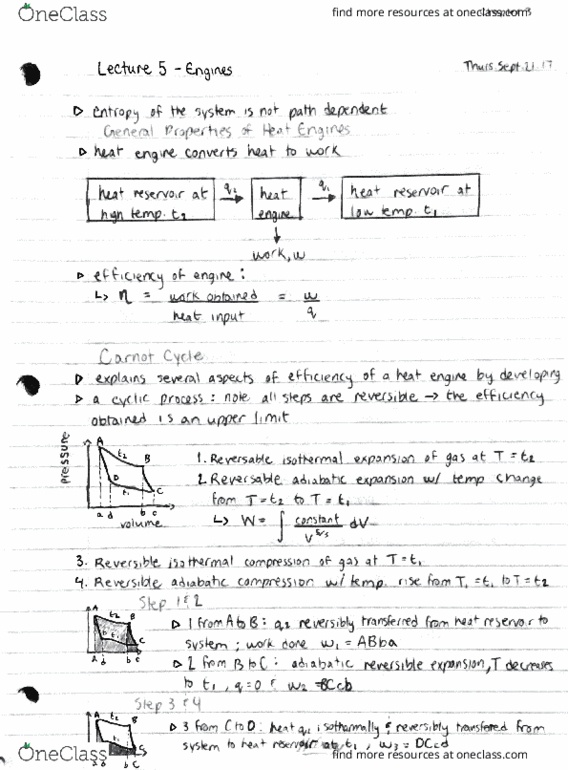 OneClass
find more resources at oneclass.com
Lecture 5 - Engines
Thurs. Sept. 21. 17
entropy of the system is not path dependent
General Properties of Heat Engines
heat engine converts heat to work
heat reservoir at high temp. t₂
q₂
heat engine
q₁
heat reservoir at low temp. t₁
work, w
efficiency of engine:
↳ η = work obtained / heat input = w / q
Carnot Cycle
explains several aspects of efficiency of a heat engine by developing
a cyclic process: note all steps are reversible → the efficiency
obtained is an upper limit
pressure
A
t₂
B
D
t₁
C
a d b c
volume
1. Reversable isothermal expansion of gas at T = t₂
2. Reversable adiabatic expansion w/ temp change
from T = t₂ to T = t₁
↳ W = ∫ constant / V^5/3 dV
3. Reversible isothermal compression of gas at T = t₁
4. Reversible adiabatic compression w/ temp. rise from T₁ = t₁ to T = t₂
Step 1 & 2
A
t₂
B
D
t₁
C
a d b c
1 from A to B: q₂ reversibly transferred from heat reservoir to
system; work done w₁ = ABba
2 from B to C: adiabatic reversible expansion, T decreases
to t₁, q = 0 & w₂ = BCcb
Step 3 & 4
A
t₂
B
3 from C to D: heat isothermally & reversibly transfered from
system to heat reservoir at t₁, w₃ = DCcd
OneClass
find more resources at oneclass.com